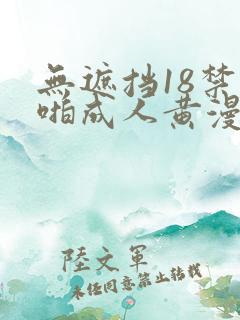 無遮挡18禁
啪成人黄漫
陸文军
未任同意禁止转载